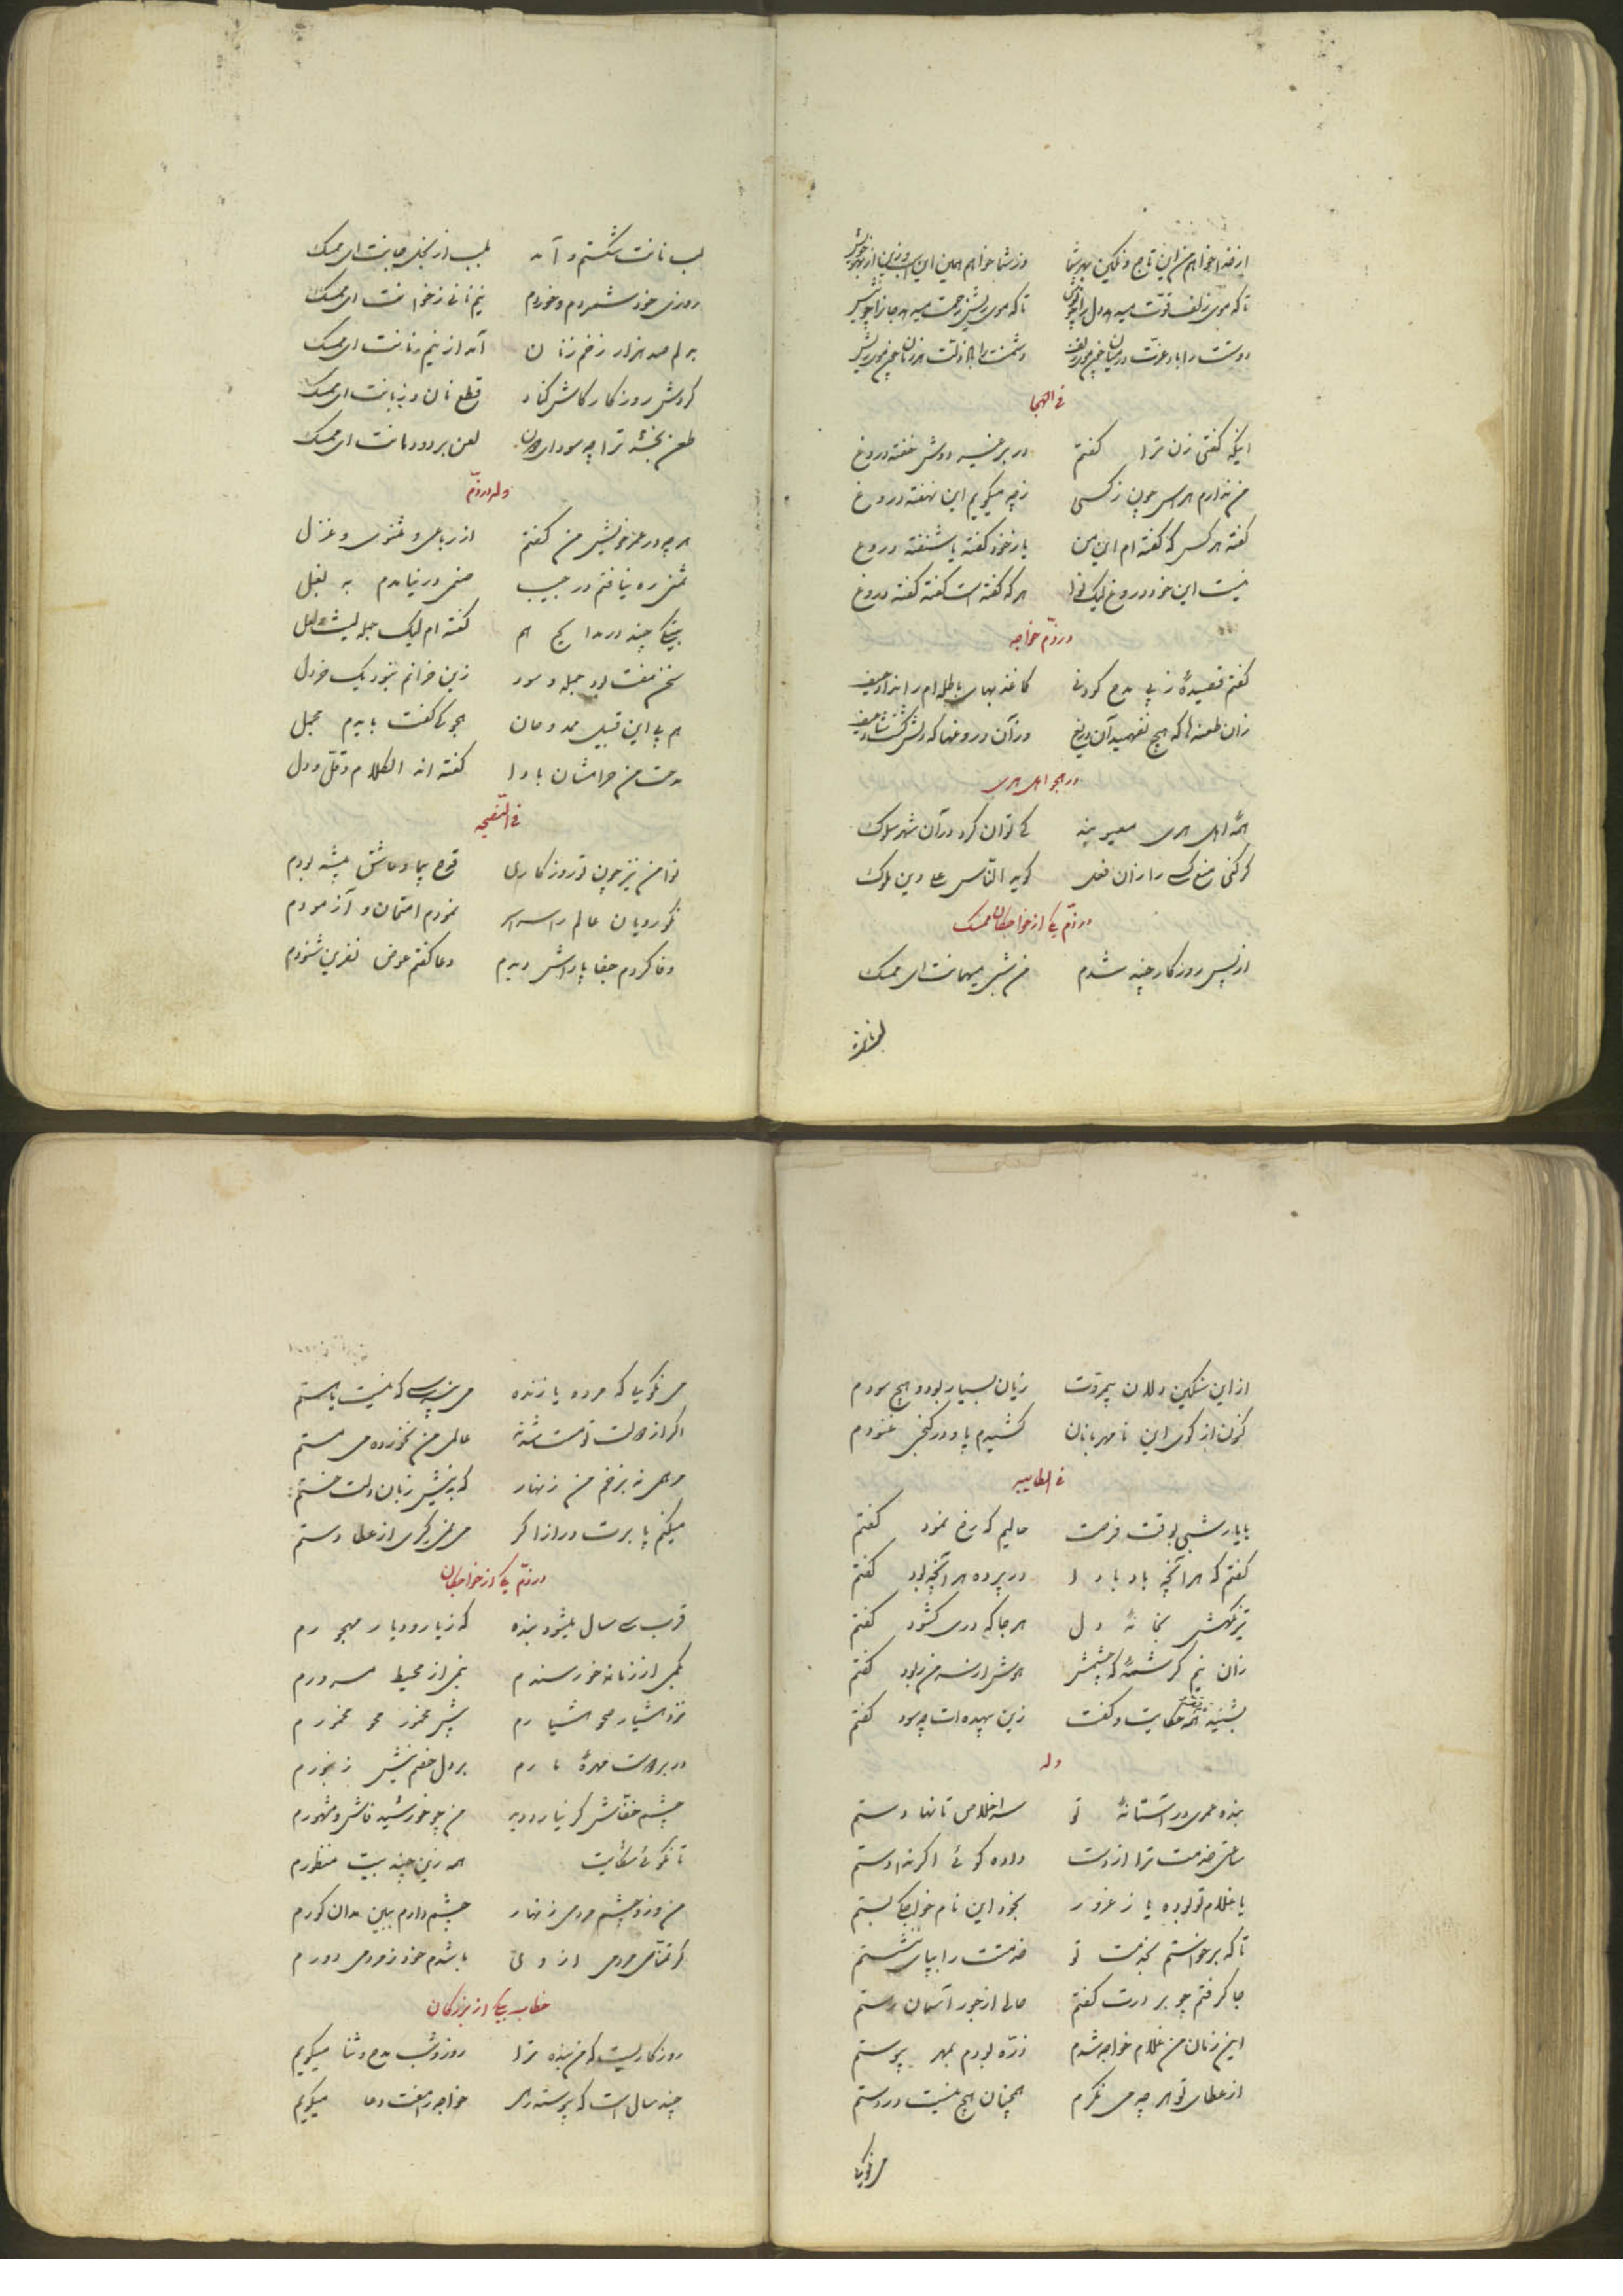 از خدا خواهم من این تاج و نگین بهر شما وز شما خواهم همین این اسب و زین از بهر خویش
تا که موی زلف قوّت میدهد دل را چو تا که موی ریش زحمت میدهد جانرا چو نیش
دوستت را باد عزّت در میان همچو زلف دشمنت را باد ذلّت هر زمان همچو ریش
فی الهجا
اینکه گفتی زن ترا گفتم در بر غیر دوش خفته دروغ
من ندارم هراس چون ز کسی ز چه میگویم این نهفته دروغ
گفته هر کس که گفته ام این من یا ز خود گفته یا شنفته دروغ
نیست این خود دروغ لیک ترا هر که گفته است گفته گفته دروغ
در ذمّ خواجه
گفتم قصیدهٔ ز پی مدح کودنی کاغذ بهای باطله ام را نداد حیف
زان طعنه ها که هیچ نفهمید آن دریغ وز آن دروغها که دلش گشت شاد حیف
در هجو اهل هری
همه اهل هری معیر بند کی توان کرد در آن شهر سلوک
گر کنی منع یکی را زان فعل گوید النّاس علی دین ملوک
در ذمّ یکی از خواجگان ممسک
از پس روزگار چند شدم من شبی میهمانت ای ممسک
لب نانت
لب نانت شکستم و آمد بلب از بخل جانت ای ممسک
روزی خود شمردم و خوردم نیم نانی ز خوانت ای ممسک
بدلم صد هزار زخم زنان آمد از نیم نانت ای ممسک
گردش روزگار کاش کناد قطع نان و زبانت ای ممسک
طعن بخشد ترا چه سود ای دون لعن بر دودمانت ای ممسک
وله در ذمّ
هر چه در عمر خویش من گفتم از رباعی و مثنوی و غزل
ثمنی ره نیافتم در جیب صنمی در نیامدم به بغل
بیتکی چند در مدایح هم گفته ام لیک جمله لیت و لعل
سخن مفت بود جمله و سود زین خرانم نبود یک خردل
هم پی این قبیل ممدوحان هجوکی گفت بایدم مجمل
مدحت من حرامشان بادا گفته اند الکلام و قلّ و دل
فی النّصیحه
نوا من نیز چون تو روزگاری قدح پیما و عاشق پیشه بودم
نکورویان عالم را سراسر نمودم امتحان و آزمودم
وفا کردم جفا پاداش دیدم دعا گفتم عوض نفرین شنودم
از این سنگین دلان بیمروّت زیان بسیار بود و هیچ سودم
کنون از کوی این نامهربانان کشیدم پا و در کنجی غنودم
فی المطایبه
با یار شبی بوقت فرصت حالیم که رخ نمود گفتم
گفتم که هر آنچه باد بادا در پرده هر آنچه بود گفتم
تیر نگهش بخانهٔ دل هر جا که دری گشود گفتم
زان نیم کرشمهٔ که چشمش هوش از سر من ربود گفتم
بشنید همه حکایت و گفت زین بیهده ات چه سود گفتم
وله
بنده عمری در آستانهٔ تو سر اخلاص تا نهادستم
ساعتی خدمت ترا از دست داده گوئی اگر ندادستم
یا غلام تو بوده یا ز غرور بخود این نام خواجگی بستم
تا که برخواستم بخدمت تو خدمتت را بپای ننشستم
جا گرفتم چو بر درت گفتم حالی از جور آسمان رستم
این زمان من غلام خواجه شدم ذرّه بودم بمهر پیوستم
از عطای تو هر چه می نگرم همچنان هیچ نیست در دستم
می نگوئیا
می نگوئیا که مرده یا زنده می نپرسی که نیست یا هستم
اگر از دولت تو مست شدند عالمی من نخورده می مستم
مرهمی نه بزخم من زنهار که به نیش زبان دلت خستم
میکنم پا برت دراز اگر می نگیری از عطا دستم
در ذمّ یکی از خواجگان
قرب سی سال میشود بنده که ز یار و دیار مهجورم
بکمی از زمانه خورسندم بنمی از محیط مسرورم
نزد هشیار محو هشیارم پیش مخمور محو مخمورم
در بر دوست مهرهٔ مارم بر دل خصم نیش زنبورم
چشم خفّاش گر نیارد دید من چو خورشید فاش و مشهورم
تا نگوئی شکایت همه زین چند بیت منظورم
من و زو چشم مردمی زنهار چشم دارم ببین مدان کورم
گر تمنّای مردمی از وی باشدم خود ز مردمی دورم
خطاب بیکی از بزرگان
روزگاریست که من بنده ترا روز و شب مدح و ثنا میگویم
چند سال است که پیوسته همی خواجه را مفت دعا میگویم